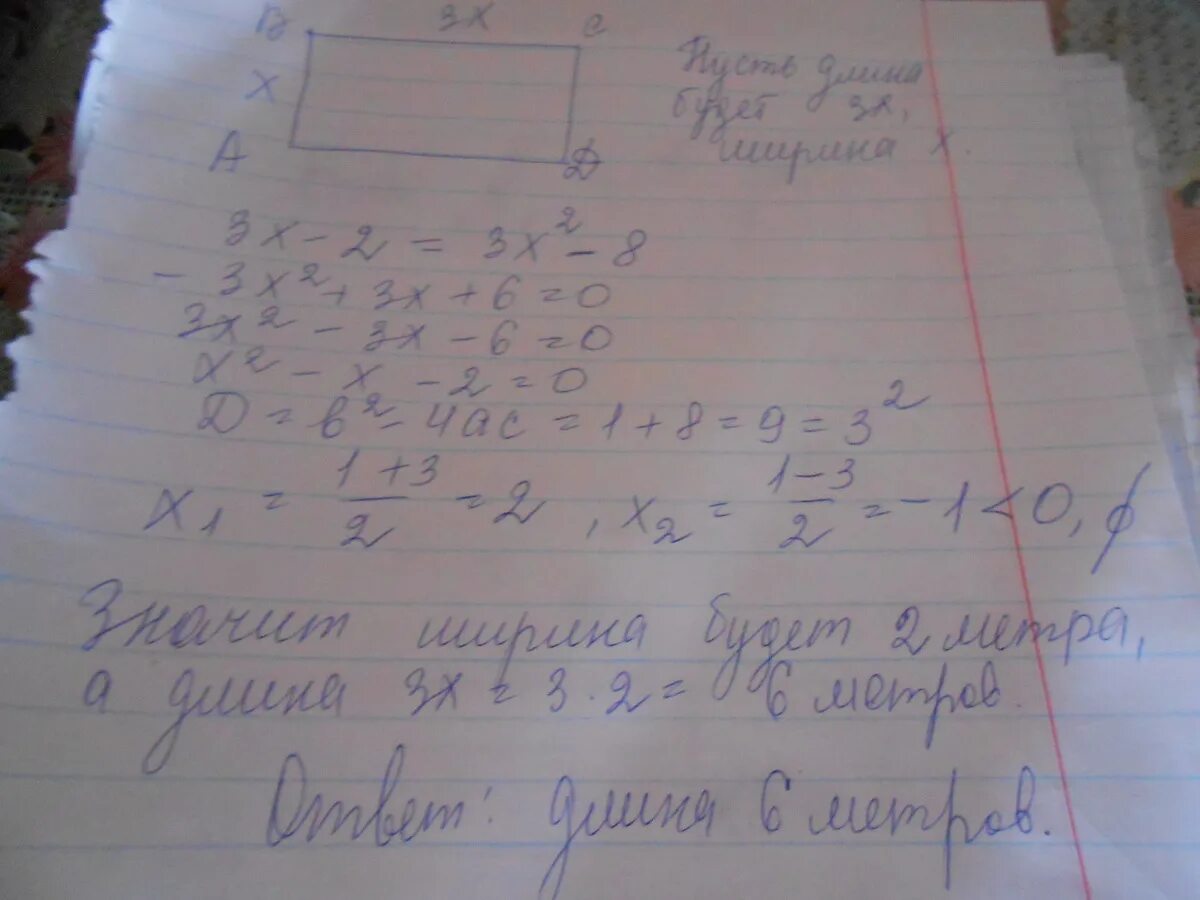 B 3x C
x
A D
Пусть длина
будет 3x,
ширина x.
3x - 2 = 3x² - 8
- 3x² + 3x + 6 = 0
3x² - 3x - 6 = 0
x² - x - 2 = 0
D = b² - 4ac = 1 + 8 = 9 = 3²
x₁ = (1+3)/2 = 2, x₂ = (1-3)/2 = -1 < 0, ∅
Значит ширина будет 2 метра,
а длина 3x = 3 · 2 = 6 метров.
Ответ: длина 6 метров.